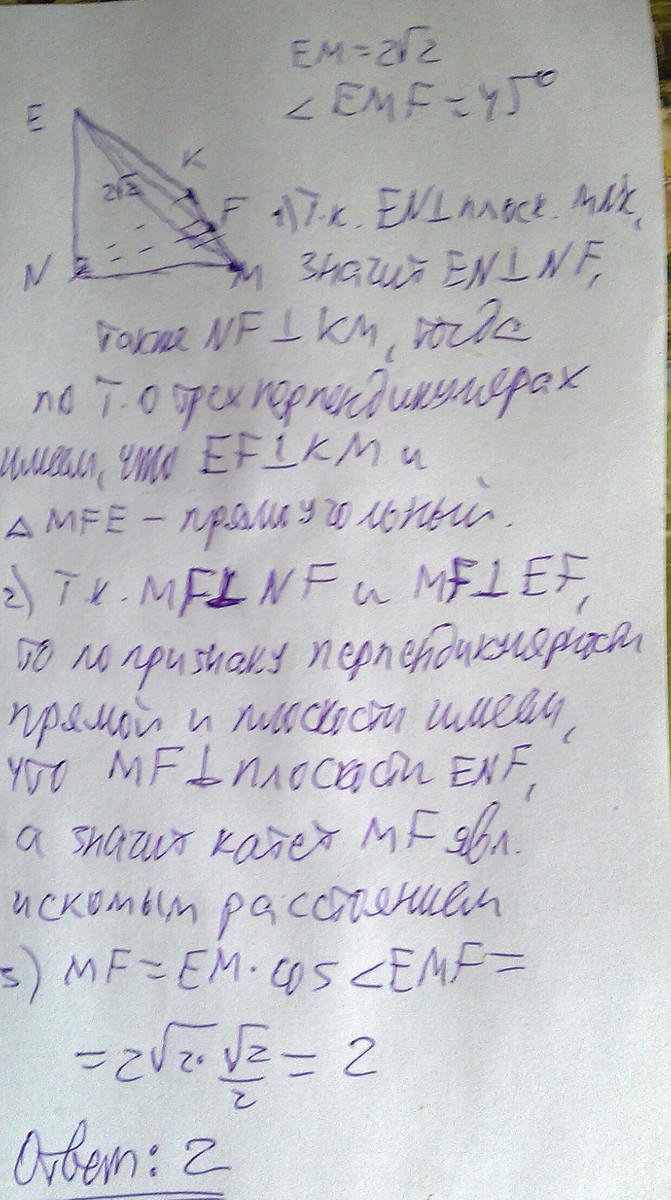 EM = 2√2
∠ EMF = 45°
E
K
2√2
F
N
M
1) Т.к. EN⊥плоск. MNK,
значит EN⊥NF,
также NF⊥KM, тогда
по Т. о трех перпендикулярах
имеем, что EF⊥KM и
△ MFE – прямоугольный.
2) Т.к. MF⊥NF и MF⊥EF,
то по признаку перпендикулярности
прямой и плоскости имеем,
что MF⊥плоскости ENF,
а значит катет MF явл.
искомым расстоянием
3) MF = EM · cos ∠EMF =
= 2√2 · √2/2 = 2
Ответ: 2